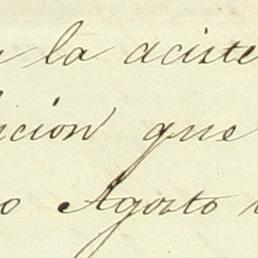 la aciste
icion que
o Agosto